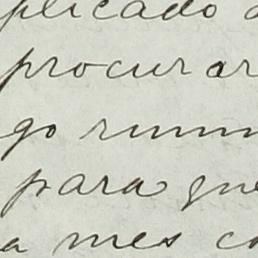 plicado
procurar
go
para que
a mes co